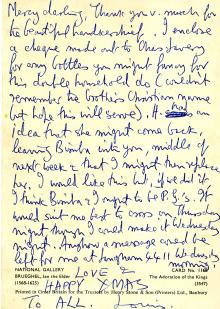 Mercy darling, Thank you v. much for
the beautiful handkerchief, I enclose
a cheque made out to Ones
for any bottles you might fancy for
this double household do (couldn't
remember he brothers Christian name
but hope this will serve). It had an
idea that she might come back,
leaving Bimba into you middle of
next week & that I might then replace
her. I would like this but, if we did it
I think Bimba & I ought to be P.G.s. It
would suit me best to cross on Thursday
night though I could make it Wednesday
night. Anyhow a message could be
left for me at Langham 4411 Wednesday
morning.
NATIONAL GALLERY
BRUEGHEL, Jan the Elder
(1568-1625)
CARD No.
The Adoration of the Kings
(3547)
LOVE &
HAPPY XMAS
Printed in Great Britain for the Trustees by Henry Stone & Son (Printers) Ltd., Banbury
TO ALL